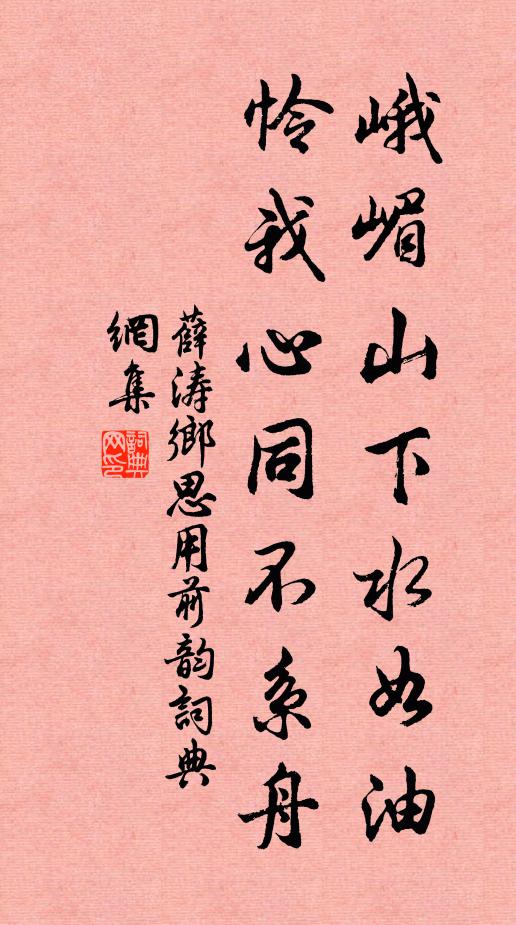 峨嵋山下水如油
怜我心同不系舟
薛涛鄉思用前韵詞典
網集
詞典
网印